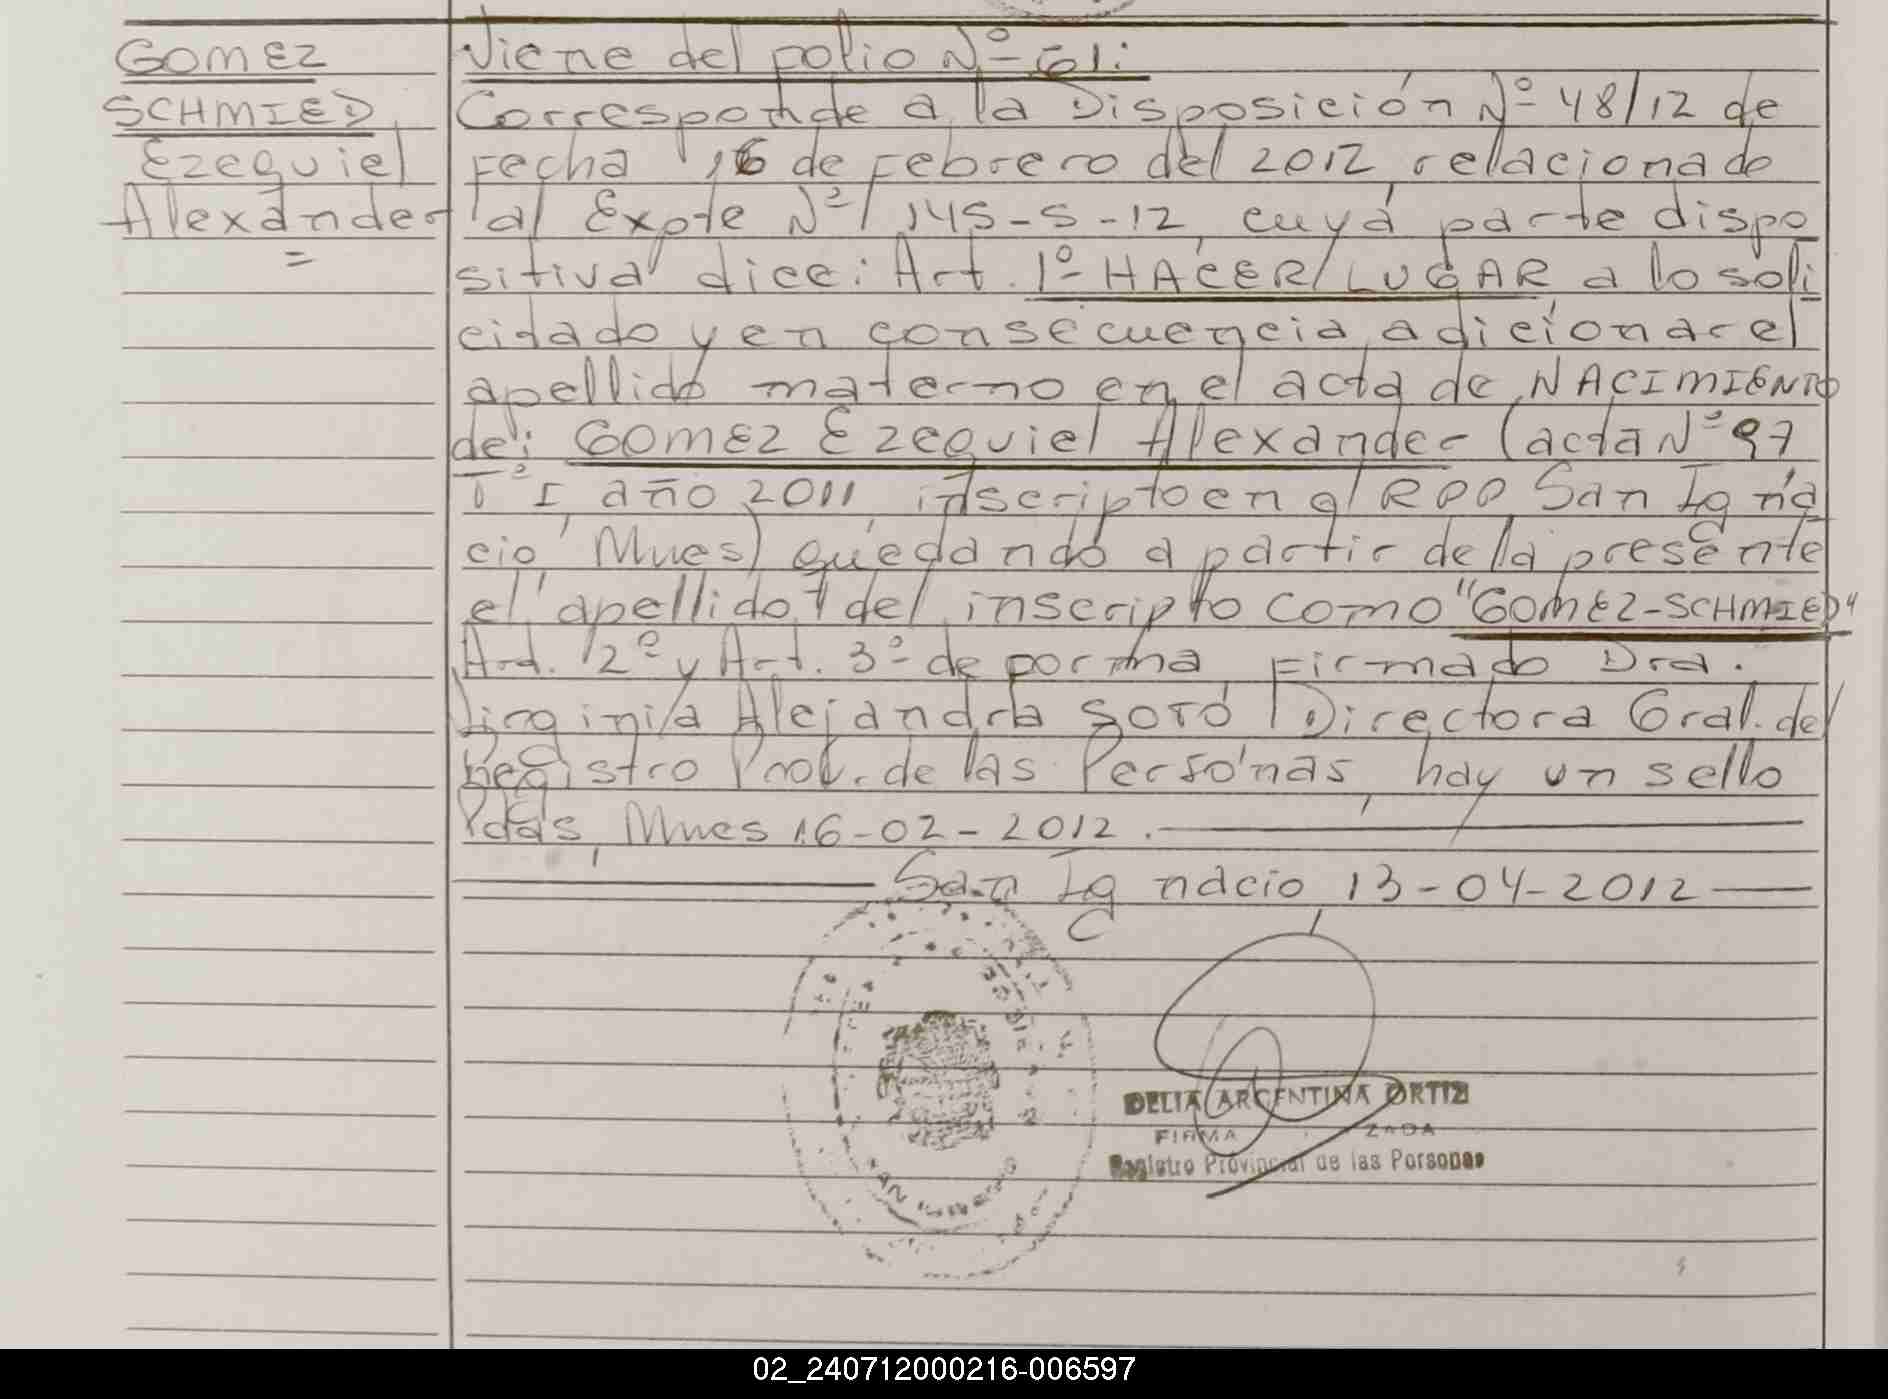 GOMEZ
SCHMIED
Ezequiel
Alexander
=
Viene del folio Nº 61:
Corresponde a la Disposición Nº 48/12 de
Fecha 16 de Febrero del 2012, relacionado
al Expte Nº 145-S-12, cuya parte dispo
sitiva dice: Art. 1º HACER LUGAR a lo soli
citado y en consecuencia, adicionar el
apellido materno en el acta de NACIMIENTO
de: GOMEZ Ezequiel Alexander (acta Nº 97
Tº I, año 2011, inscripto en el RPP San Igna
cio, Mnes) quedando a partir de la presente
el apellido del inscripto como "GOMEZ-SCHMIED"
Art. 2º y Art. 3º de forma, Firmado Dra.
Virginia Alejandra SOTO Directora Gral. del
Registro Prov. de las Personas, hay un sello
Pdas, Mnes 16-02-2012.
San Ignacio, 13-04-2012
DELIA ARGENTINA ORTIZ
FIRMA ZADA
Registro Provincial de las Personas
02_240712000216-006597